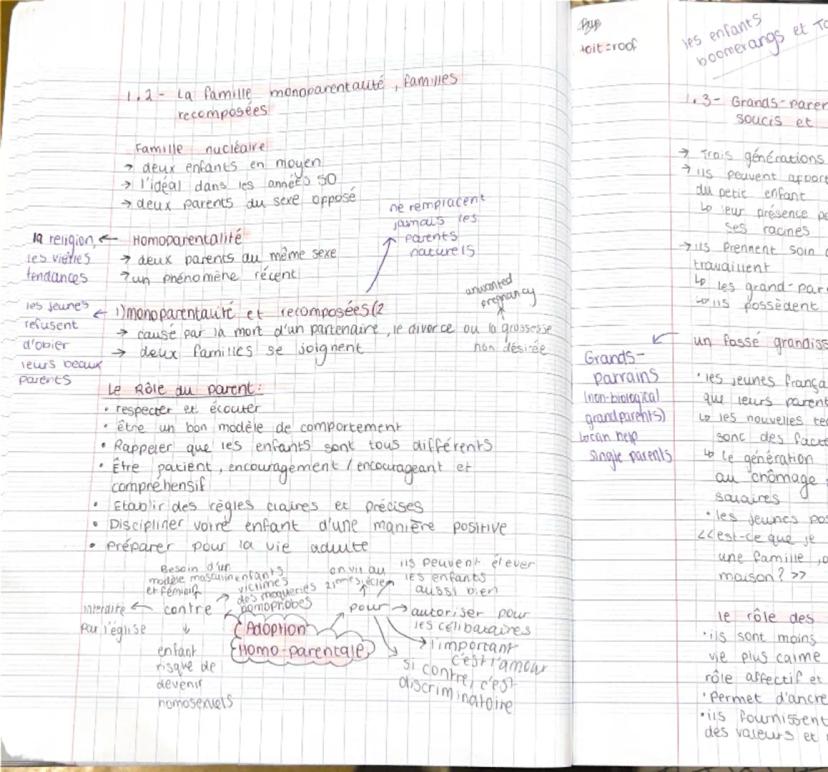 1.2- La famille monoparentalité, familles
recomposées
Famille nucléaire
→ deux enfants en moyen
→ l'idéal dans les années 50
→ deux parents du sexe opposé
ne remplacent
jamais les
parents
naturels
la religion, ← Homoparentalité
les vieilles
tendances
→ deux parents du même sexe
→ un phénomène récent
unwanted
pregnancy
les jeunes
refusent
d'obier
leurs beaux
parents
← 1) monoparentalité et recomposées (2
→ causé par la mort d'un partenaire, le divorce ou la grossesse
non désirée
→ deux familles se joignent
Le Rôle du parent:
• respecter et écouter
• être un bon modèle de comportement
• Rappeler que les enfants sont tous différents
• Être patient, encouragement / encourageant et
compréhensif
• Etablir des règles claires et précises
• Discipliner votre enfant d'une manière positive
• préparer pour la vie adulte
Besoin d'un
modèle masculin
et féminin
enfants
victimes
des moqueries
homophobes
on vit au
21ème siècle
ils peuvent élever
les enfants
aussi bien
interdite ← contre
par l'église
pour → autoriser pour
les célibataires
Adoption
Homo-parentale
l'important
c'est l'amour
si contre, c'est
discriminatoire
enfant
risque de
devenir
homosexuels
toit = roof
les enfants
boomerangs et
1.3- Grands-paren
soucis et
→ Trois générations
→ ils peuvent apport
du petit enfant
↳ leur présence
ses racines
→ ils prennent soin
travaillent
↳ les grand-par
↳ ils possèdent
un fossé grandiss
Grands-
parrains
(non-biological
grandparents)
↳ can help
single parents
• les jeunes frança
que leurs parent
↳ les nouvelles te
sont des facte
↳ le génération
au chômage
salaires
• les jeunes
<<est-ce que je
une famille,
maison? >>
le rôle des
• ils sont moins
vie plus calme
rôle affectif et
• Permet d'ancre
• ils fournissent
des valeurs et